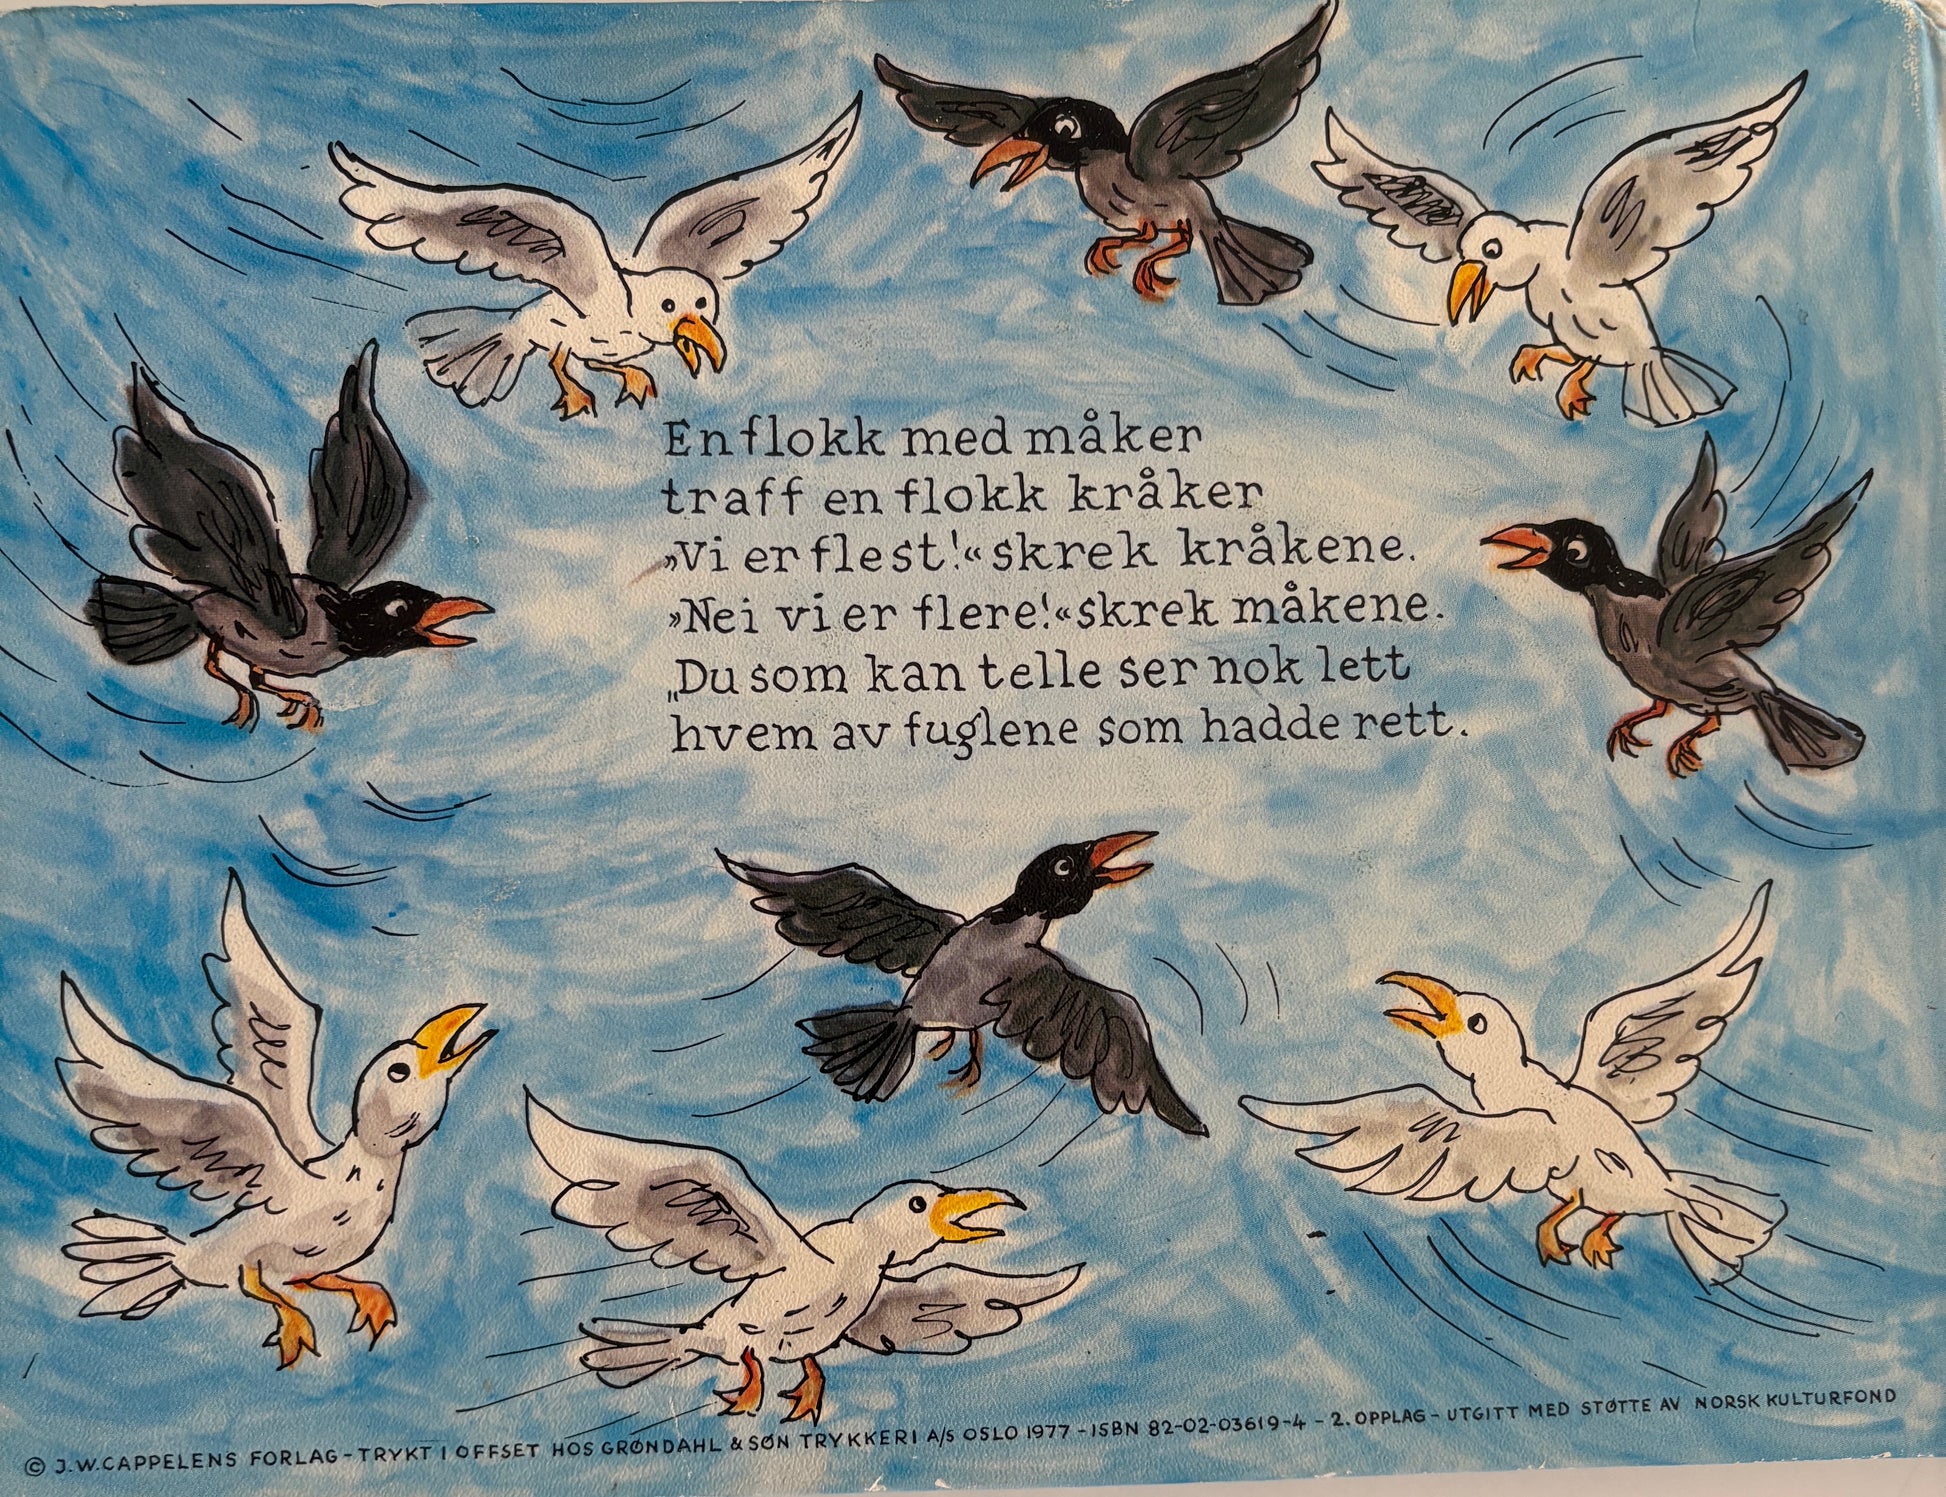 En flokk med måker
traff en flokk kråker
»Vi er flest!« skrek kråkene.
»Nei vi er flere!« skrek måkene.
„Du som kan telle ser nok lett
hvem av fuglene som hadde rett.
© J.W.CAPPELENS FORLAG - TRYKT I OFFSET HOS GRØNDAHL & SØN TRYKKERI A/S OSLO 1977 - ISBN 82-02-03619-4 - 2. OPPLAG - UTGITT MED STØTTE AV NORSK KULTURFOND